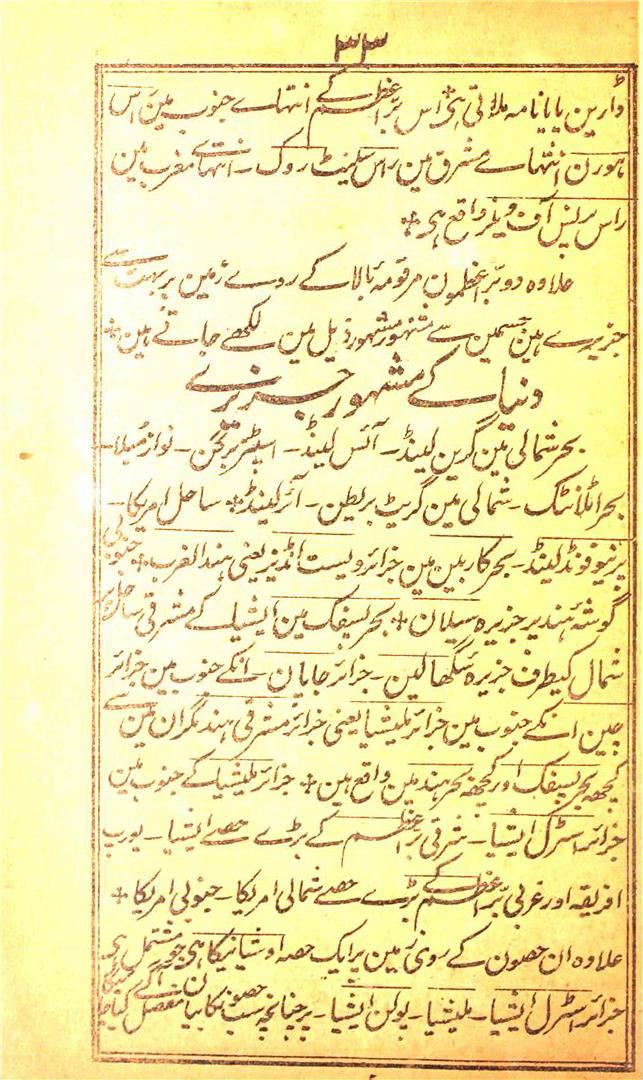 ۳۳
ڈارین یا پانامہ ملاتی ہی + اس بر اعظم کے انتہاے جنوب مین راس
ہورن انتہاے مشرق مین راس سکینٹ روک - انتہاے مغرب مین
راس پرنس آف ویلز واقع ہی +
علاوہ دو بر اعظمون مرقومہ بالا کے روے زمین پر بہت سے
جزیرے ہین جسمین سے مشہور مشہور ذیل مین لکھے جاتے ہین +
دنیا کے مشہور جزیرے
بحر شمالی مین گرین لینڈ - آئس لینڈ - اسپٹز برجن - نوازمبلا -
بحر اٹلانٹک - شمالی مین گریٹ برٹن - آئرلینڈ + ساحل امریکا -
پر نیو فونڈ لینڈ - بحر کاربین مین جزائر ویسٹ انڈیز یعنی ہند الغرب + جنوبی
گوشہ ہند پر جزیرہ سیلان + بحر پسفک مین ایشیا کے مشرقی ساحل پر
شمال کیطرف جزیرہ سنگھالین - جزائر جاپان - انکے جنوب مین جزائر
چین انکے جنوب مین جزائر ملیشیا یعنی جزائر مشرقی ہند مگر ان مین سے
کچھ بحر پسفک اور کچھ بحر ہند مین واقع ہین + جزائر ملیشیا کے جنوب مین
جزائر اسٹرل ایشیا - شرقی بر اعظم کے بڑے حصے ایشیا - یورپ
افریقہ اور غربی بر اعظم کے بڑے حصے شمالی امریکا - جنوبی امریکا +
علاوہ ان حصون کے روی زمین پر ایک حصہ اوشیانیکا ہی جو مشتمل ہی
جزائر اسٹرل ایشیا - ملیشیا - پولن ایشیا - پر چنانچہ سب حصونکا بیان آگے مفصل کیا جائیگا